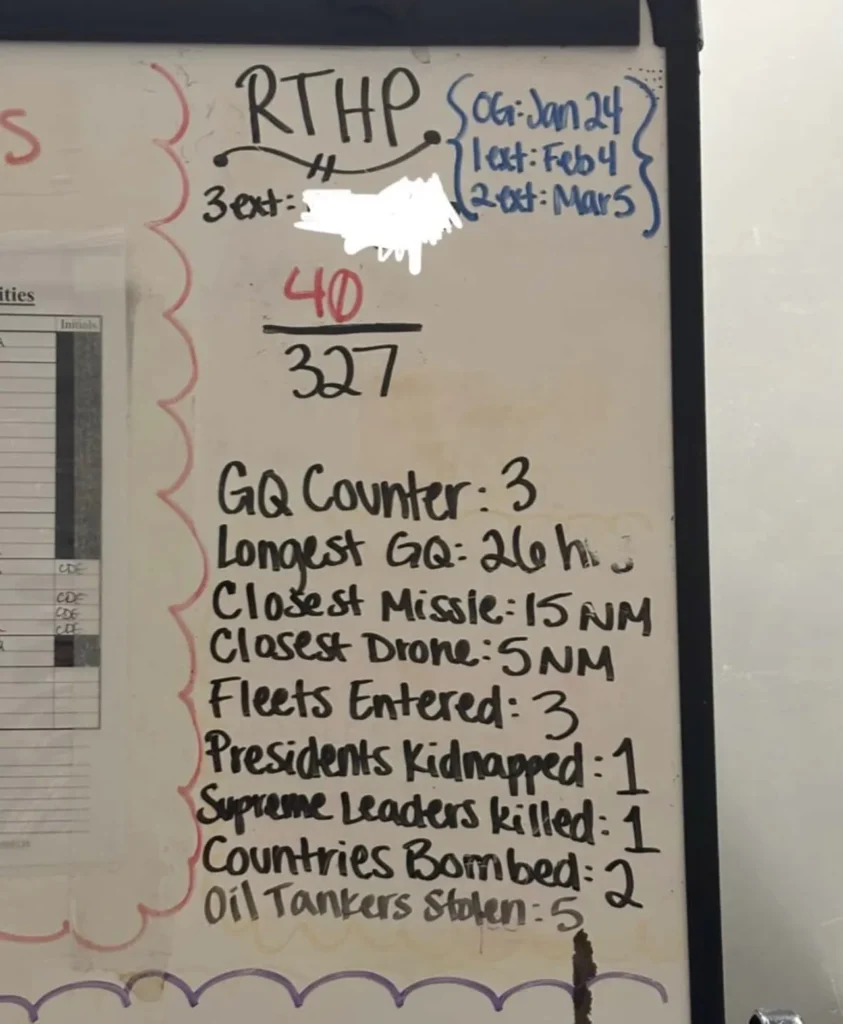 S
RTHP
OG: Jan 24
1ext: Feb 4
2ext: Mar 5
3ext:
40
327
ities
Initials
CDE
CDE
CDE
CDE
GQ Counter: 3
Longest GQ: 26 h
Closest Missle: 15 NM
Closest Drone: 5 NM
Fleets Entered: 3
Presidents Kidnapped: 1
Supreme Leaders killed: 1
Countries Bombed: 2
Oil Tankers Stolen: 5